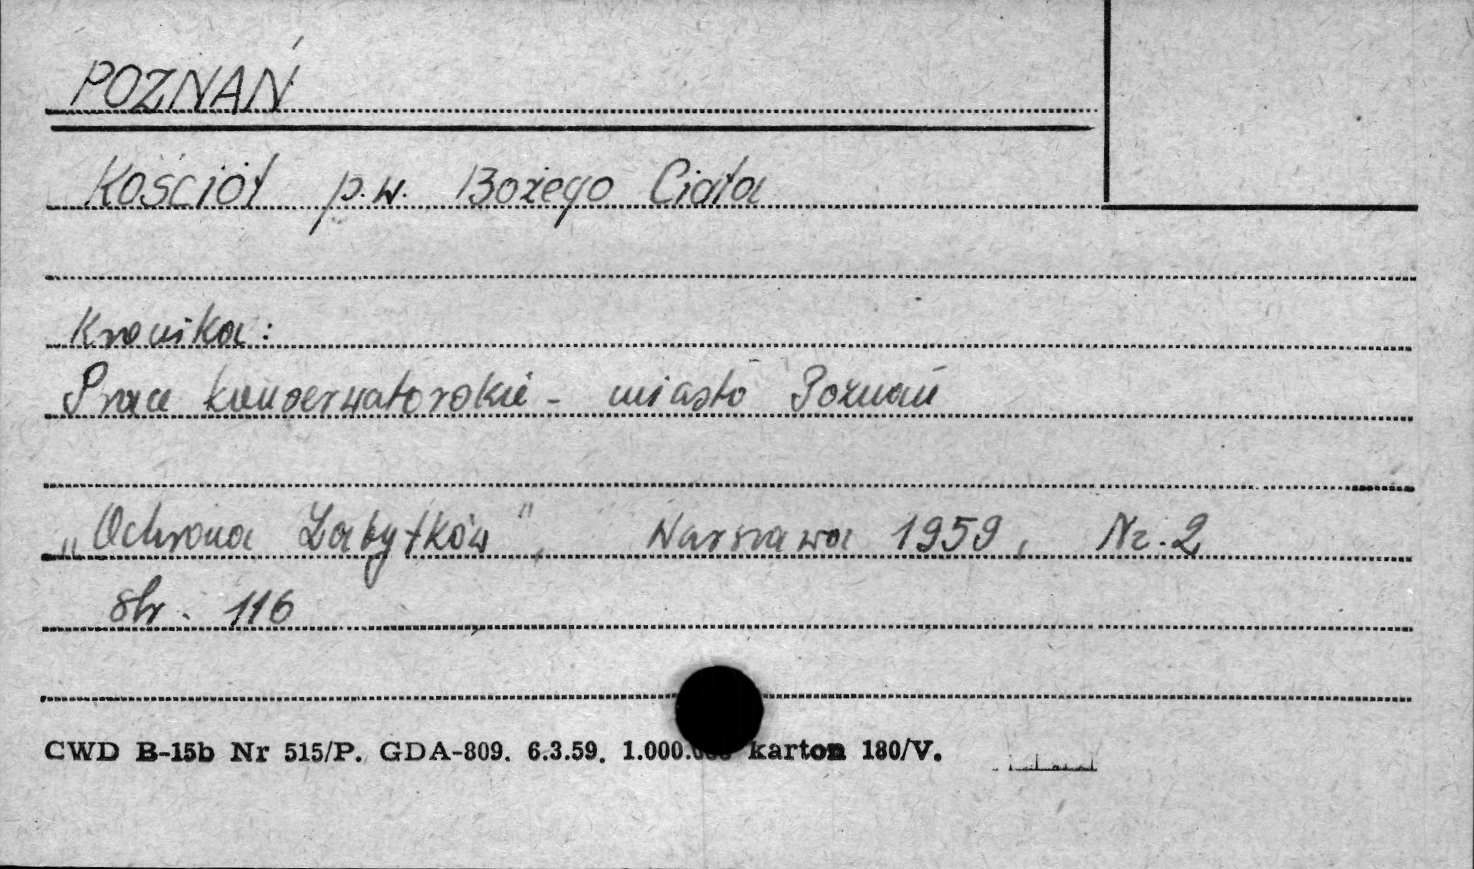 POZNAŃ
Kościół p.w. Bożego Ciała
Kronika:
Prace konserwatorskie - miasto Poznań
„Ochrona Zabytków", Warszawa 1959, Nr. 2
str. 116
CWD B-15b Nr 515/P. GDA-809. 6.3.59. karton 180/V.